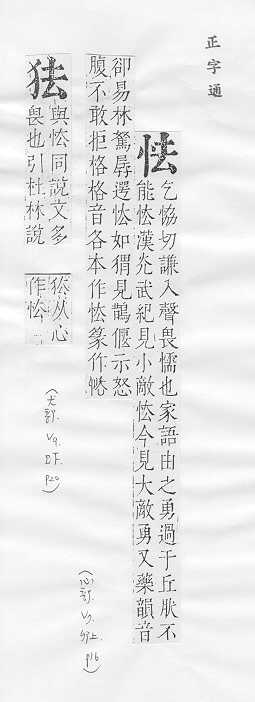 正字通
怯
乞協切謙入聲畏懦也家語由之勇過于丘肰不
能怯漢光武紀見小敵怯今見大敵勇又藥韻音
卻易林驚辱逻怯如猬見鵲偃示怒
腹不敢拒格格音各本作怯篆作
狜
與怯同說文多
畏也引杜林說
从心
作怯
(心部 V9 卯上 p16)
(犬部 V9 巳下 p20)